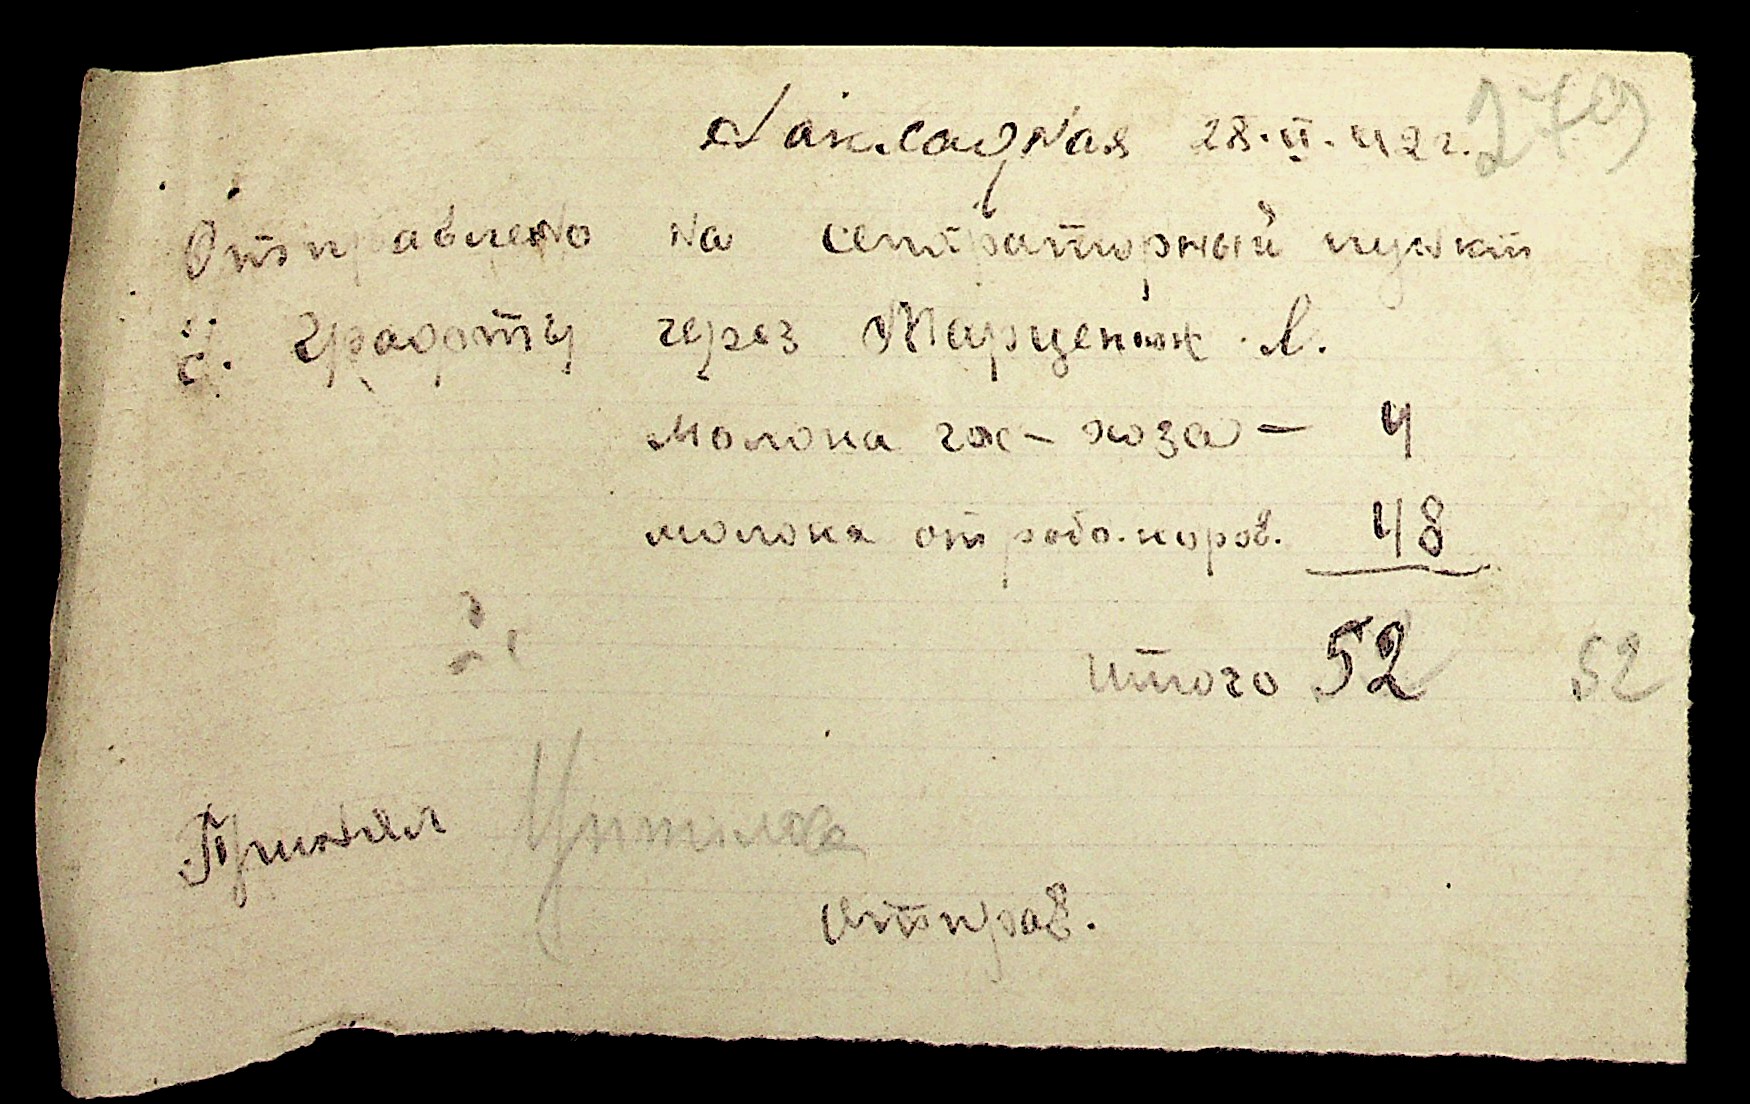 Накладная 28.VI.42 г. 279
Отправлено на сепараторный пункт
с. через Марценюк Л.
молока гос-хоза – 4
молока от рабо.коров. 48
итого 52 52
Принял
Отправ.